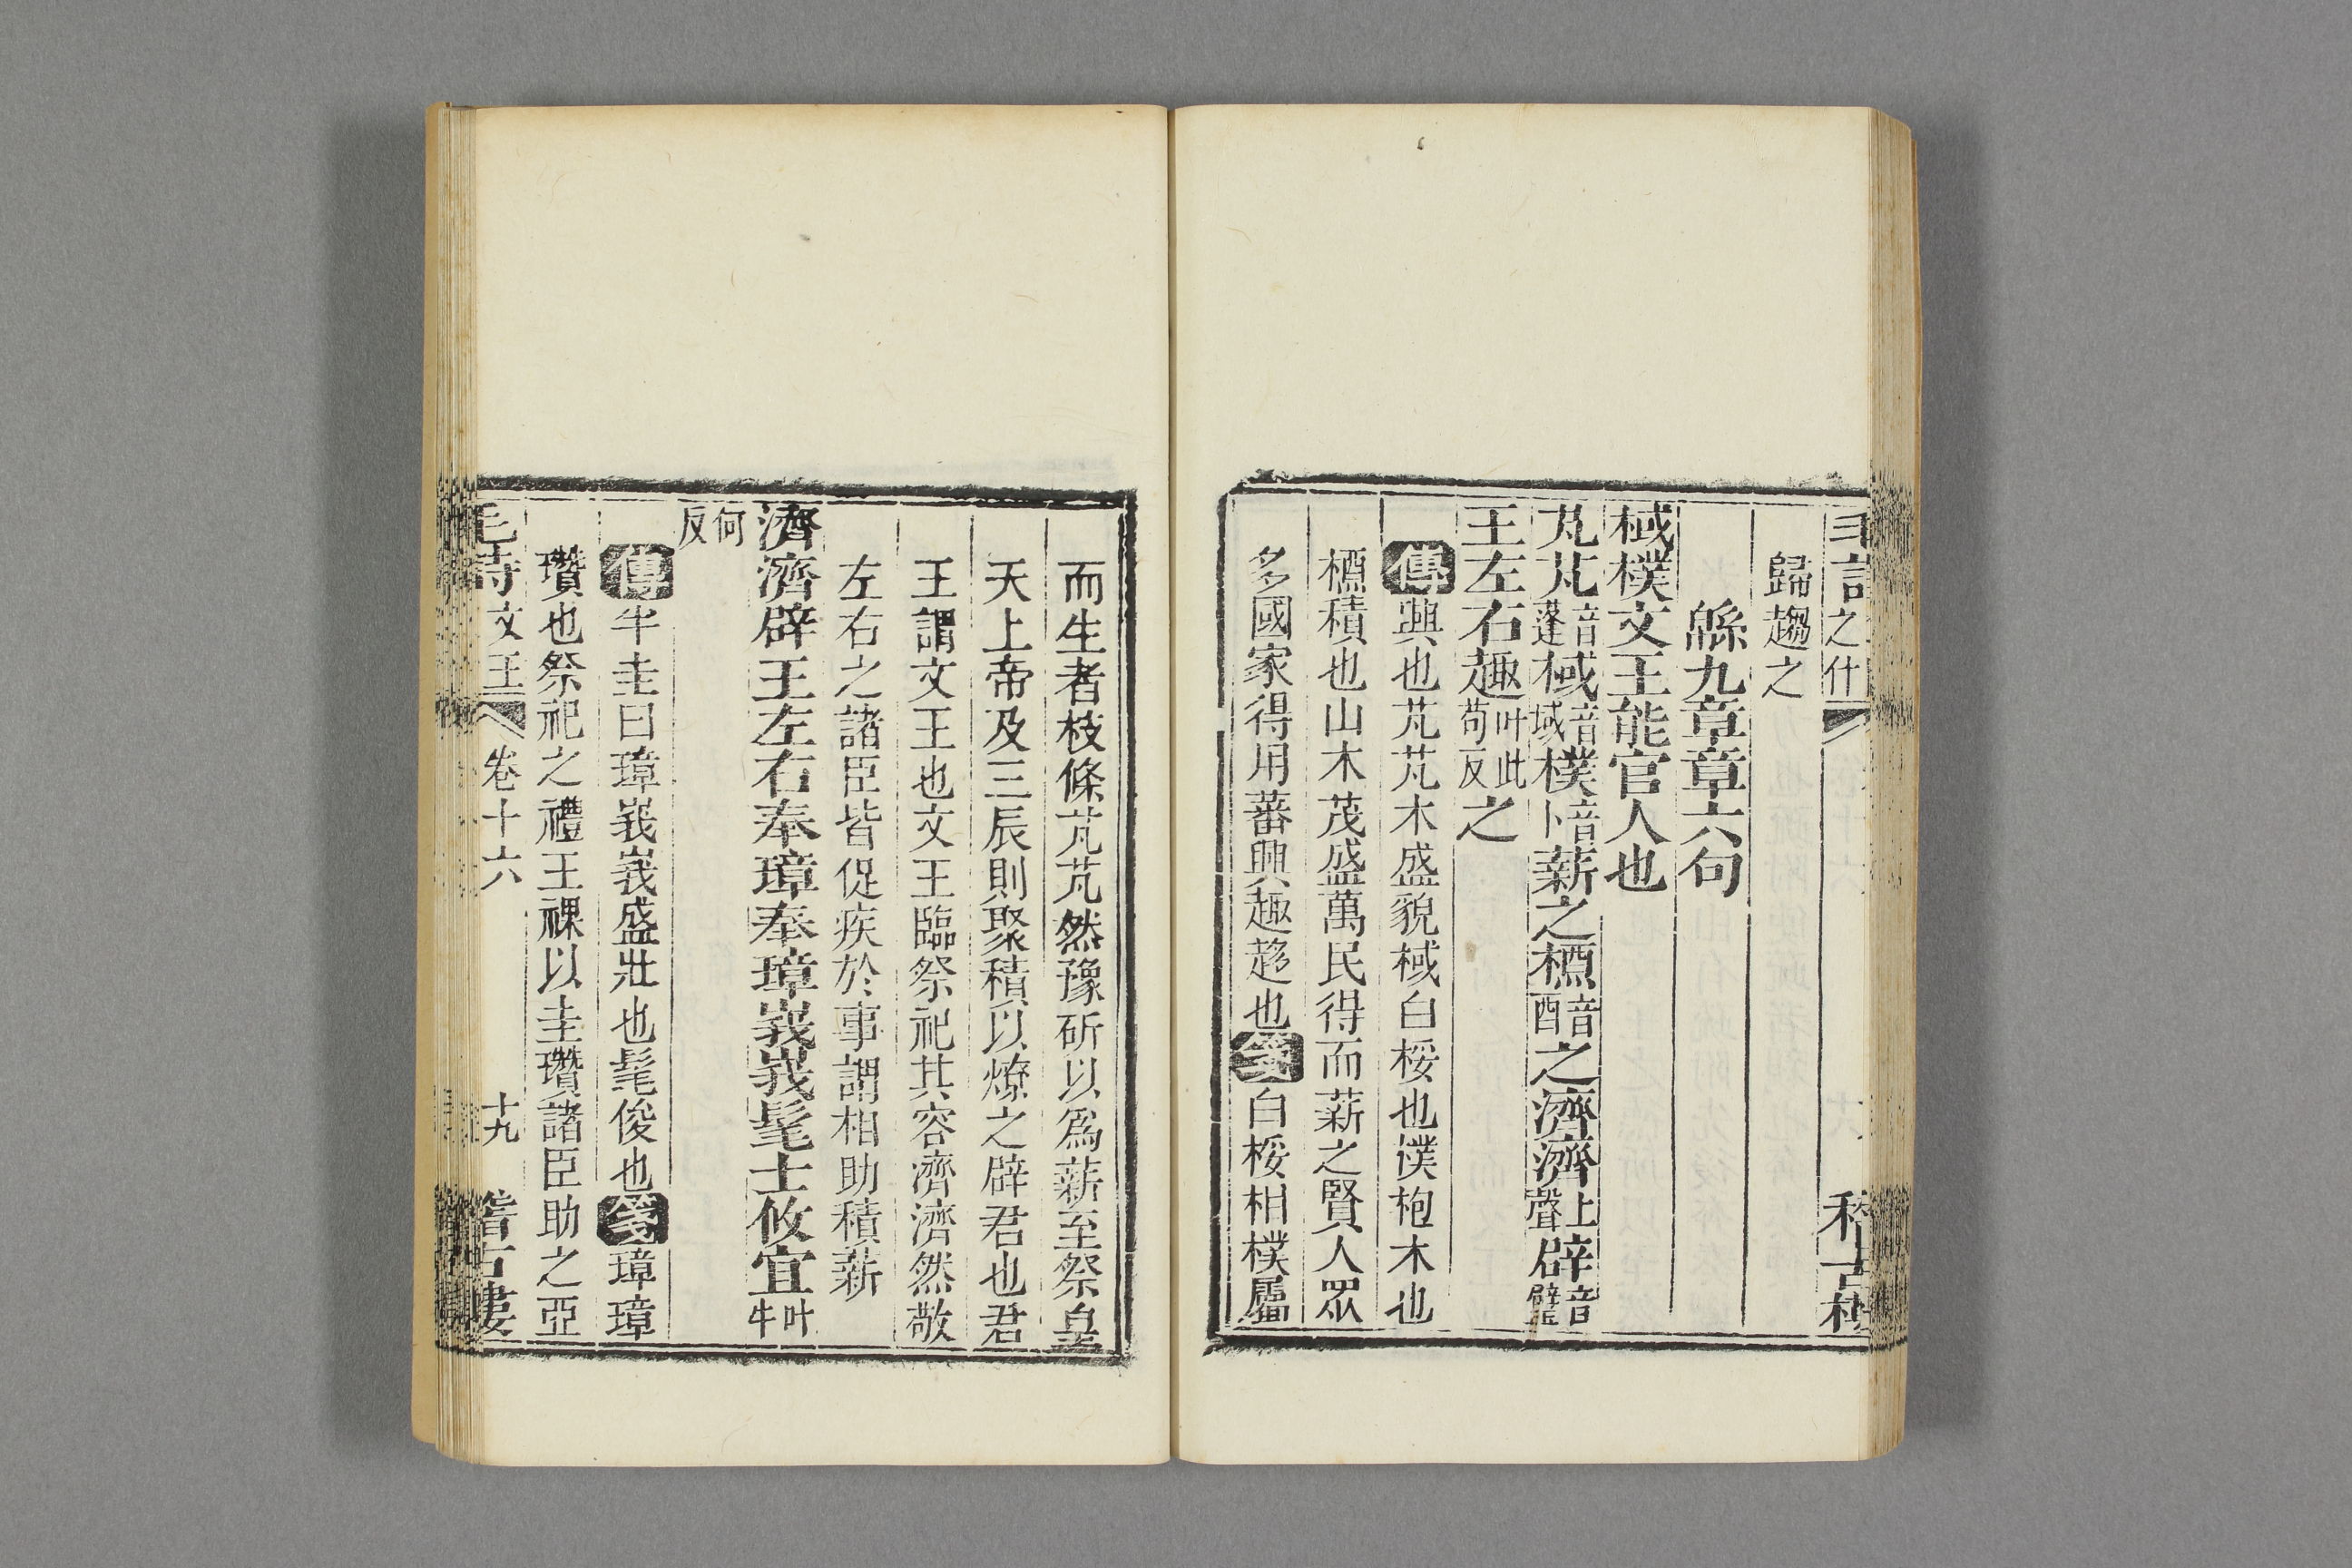 歸趨之
緜九章章六句
棫樸文王能官人也
芃芃音蓬棫音域樸音卜薪之槱音酉之濟濟上聲辟音璧
王左右趣叶此苟反之
傳興也芃芃木盛貌棫白桵也樸枹木也
槱積也山木茂盛萬民得而薪之賢人眾
多國家得用蕃興趣趨也箋白桵相樸屬
而生者枝條芃芃然豫斫以爲薪至祭皇
天上帝及三辰則聚積以燎之辟君也君
王謂文王也文王臨祭祀其容濟濟然敬
左右之諸臣皆促疾於事謂相助積薪
濟濟辟王左右奉璋奉璋峩峩髦士攸宜叶牛
何反
傳半圭曰璋峩峩盛壯也髦俊也箋璋璋
瓚也祭祀之禮王祼以圭瓚諸臣助之亞
毛詩 文王 卷十六 十九 稽古樓